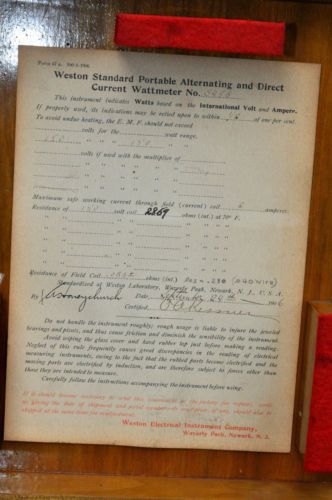 Weston Standard Portable Alternating and Direct
Current Wattmeter No.
This instrument indicates Watts based on the International Volt and Ampere.
If properly used, its indications may be relied upon to within of one per cent
To avoid undue heating, the E. M. F. should not exceed
150 volts for the 150 watt range.
" " " " "
" " " " "
volts if used with the multiplier of
" " " " " "
" " " " " "
" " " " " "
Maximum safe working current through field (current) coil amperes.
Resistance of 150 volt coil 2869 ohms (int.) at 70° F.
" " " " "
" " " " "
" " " " "
" " " " "
Resistance of Field Coil ohms (int.)
Standardized at Weston Laboratory, Waverly Park, Newark, N. J., U. S. A.
By Date, September 24th 1906
Certified,
Do not handle the instrument roughly; rough usage is liable to injure the jeweled
bearings and pivots, and thus cause friction and diminish the sensibility of the instrument.
Avoid wiping the glass cover and hard rubber top just before making a reading.
Neglect of this rule frequently causes great discrepancies in the reading of electrical
measuring instruments, owing to the fact that the rubbed parts become electrified and the
moving parts are electrified by induction, and are therefore subject to forces other than
those they are intended to measure.
Carefully follow the instructions accompanying the instrument before using.
If it should become necessary to send this instrument to the factory for repairs,
us giving the date of shipment and
shipped at the same time for
Weston Electrical Instrument Company,
Waverly Park, Newark, N. J.